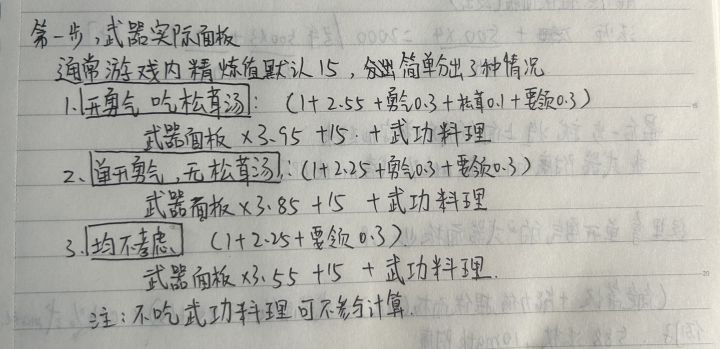 第一步,武器实际面板
通常游戏内精炼值默认15,简单分出3种情况
1.开勇气 吃松茸汤:(1+2.55+勇气0.3+松茸0.1+要领0.3)
武器面板×3.95+15+武功料理
2、单开勇气,无松茸汤:(1+2.25+勇气0.3+要领0.3)
武器面板×3.85+15 +武功料理
3.均不考虑 (1+2.25+要领0.3)
武器面板×3.55+15 +武功料理.
注:不吃武功料理可不参与计算